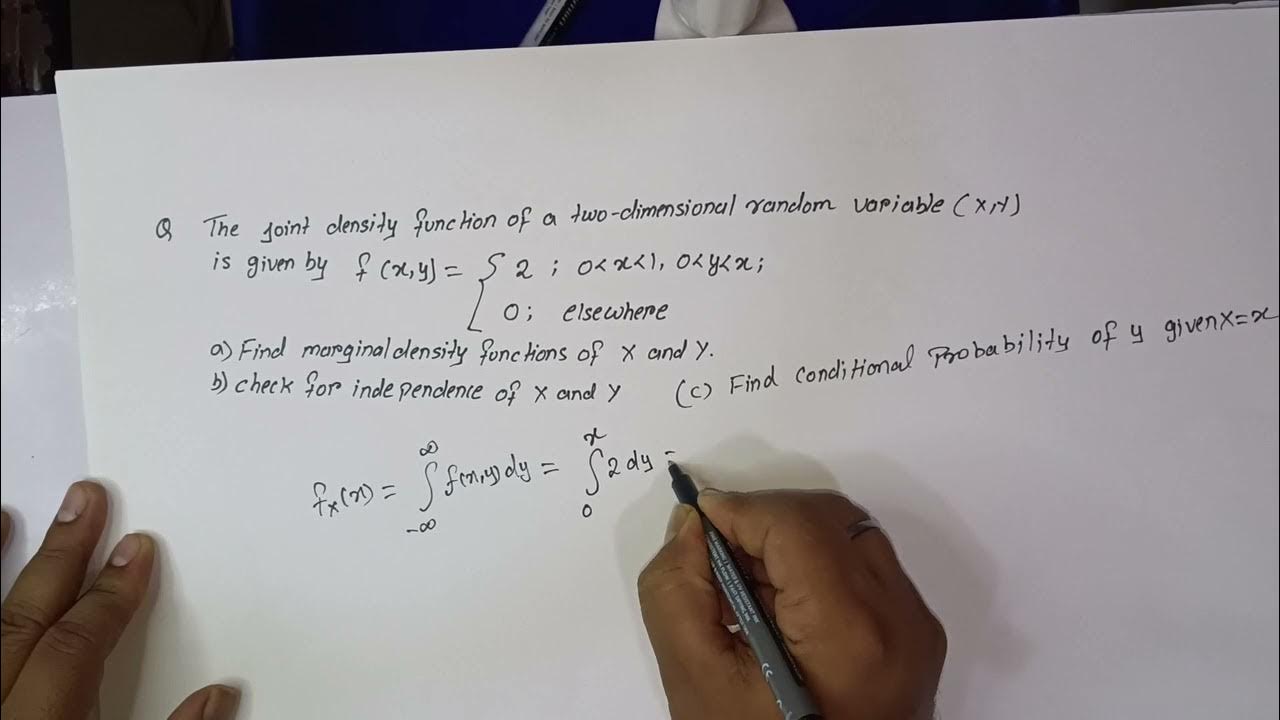 Q The joint density function of a two-dimensional random variable (X,Y)
is given by f(x,y) = { 2 ; 0<x<1, 0<y<x;
0; elsewhere
a) Find marginal density functions of X and Y.
b) check for independence of X and Y (c) Find conditional Probability of y given X=x
f_X(x) = ∫_{-∞}^{∞} f(x,y) dy = ∫_0^x 2 dy =